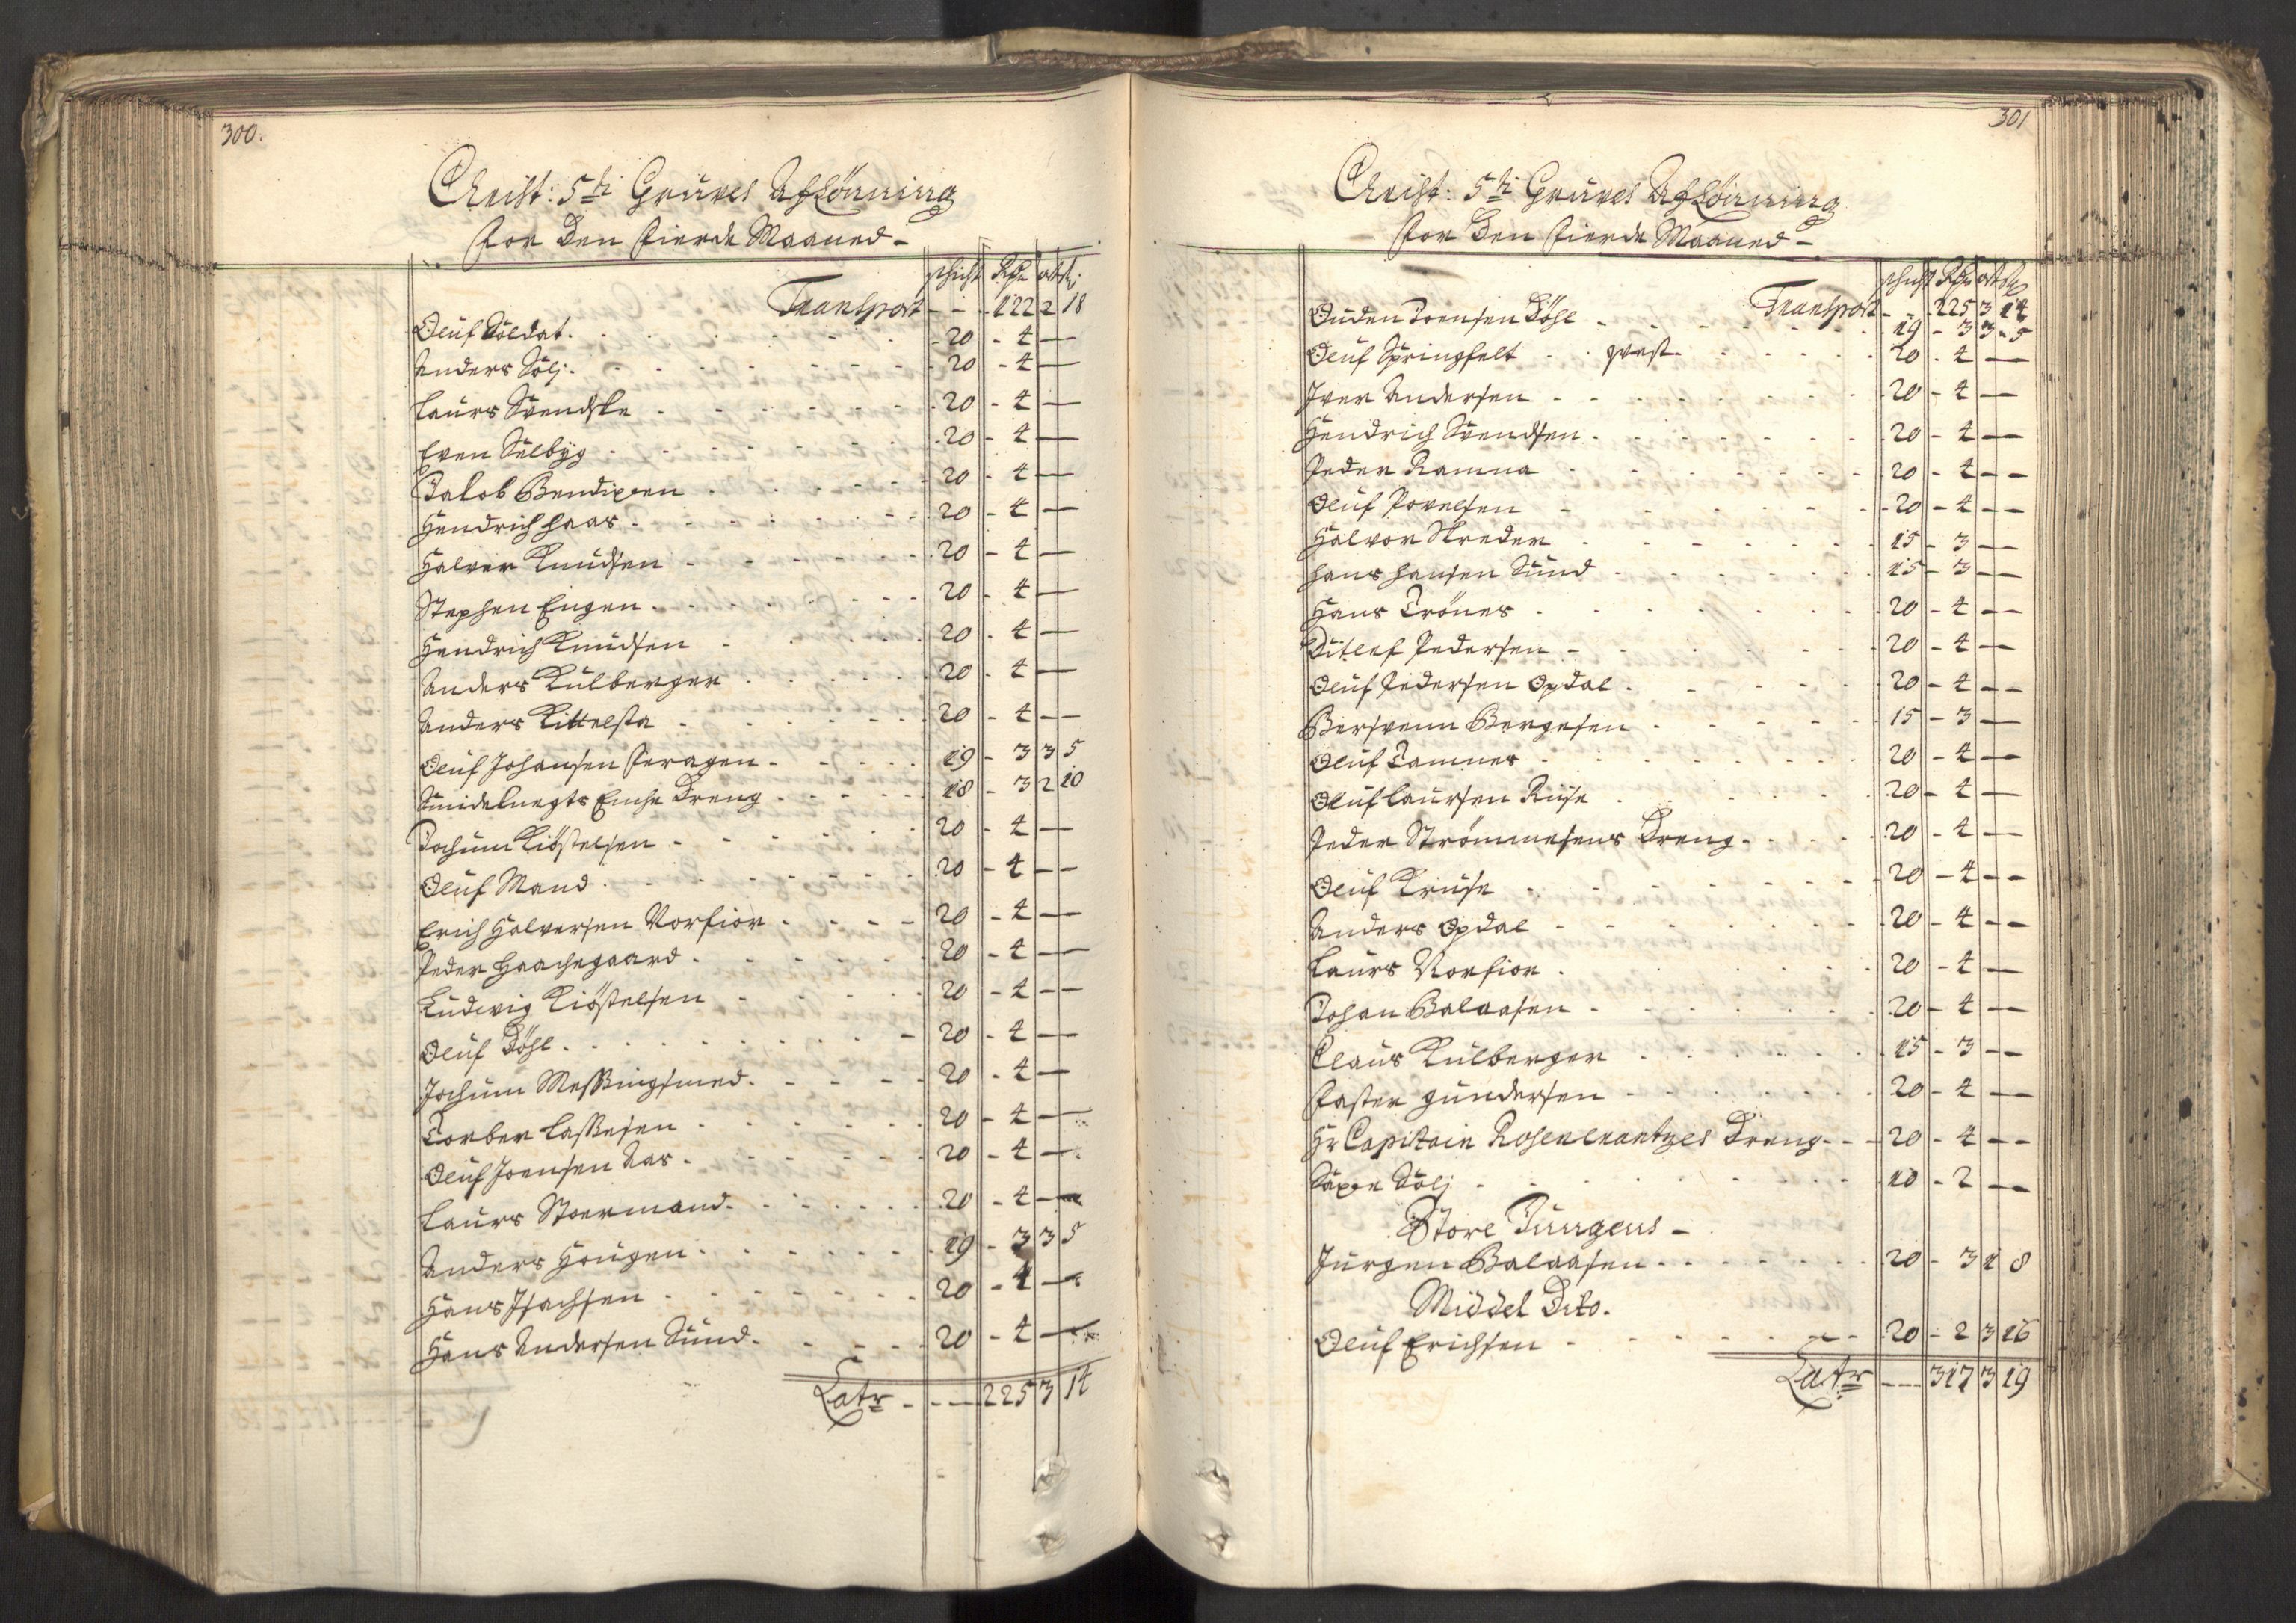 300.
Christ: 5ti Gruves Aflönning
for den fierde Maaned -
schicht Rdr ort s:
Transport - - - 122 2 18
Oluf Soldat - 20 - 4 —
Anders Sölj - 20 - 4 —
Laurs Svendske - 20 - 4 —
Even Selbyg - 20 - 4 —
Jakob Bendixen - 20 - 4 —
Hendrich Haas - 20 - 4 —
Halvor Knudsen - 20 - 4 —
Stephen Engen - 20 - 4 —
Hendrich Knudsen - 20 - 4 —
Anders Kulberger - 20 - 4 —
Anders Kittelsta - 20 - 4 —
Oluf Johansen Feragen - 19 - 3 3 5
Smideknegts Dreng - 18 - 3 2 10
Jochum Kiöstelsen - 20 - 4 —
Oluf Mand - 20 - 4 —
Erich Halversen Norfior - 20 - 4 —
Peder Haachegaard - 20 - 4 —
Ludevig Kiöstelsen - 20 - 4 —
Oluf Döhl - 20 - 4 —
Jochum Messingsmed - 20 - 4 —
Torber Lassesen - 20 - 4 —
Oluf Joensen Aas - 20 - 4 —
Laurs Stoermand - 20 - 4 —
Anders Hougen - 19 - 3 3 5
Hans Isachsen - 20 - 4 —
Hans Andersen Sund - 20 - 4 —
Latr - - - 225 3 14
301
Christ: 5ti Gruves Aflönning
for den fierde Maaned -
schicht Rdr ort s
Transport - - 225 3 14
Ouden Joensen Döhl - 19 - 3 3 - 5
Oluf Springfelt - - 20 - 4 —
Iver Andersen - 20 - 4 —
Hendrich Svendsen - 20 - 4 —
Peder Ramna - 20 - 4 —
Oluf Povelsen - 20 - 4 —
Halvor Skreder - 15 - 3 —
Hans Hansen Sund - 15 - 3 —
Hans Trönes - 20 - 4 —
Ditlef Pedersen - 20 - 4 —
Oluf Pedersen Opdal - 20 - 4 —
Bersvenn Borgesen - 15 - 3 —
Oluf Tamnes - 20 - 4 —
Oluf Laursen Ruse - 20 - 4 —
Peder Strömmesens Dreng - 20 - 4 —
Oluf Kruse - 20 - 4 —
Anders Opdal - 20 - 4 —
Laurs Norfior - 20 - 4 —
Johan Balaasen - 20 - 4 —
Claus Kulberger - 15 - 3 —
Faster Gundersen - 20 - 4 —
Hr Capitain Rosenkrantzes Dreng - 20 - 4 —
Sölj - 10 - 2 —
Store Jurgens -
Jurgen Balaasen - 20 - 3 1 8
Middel Dito.
Oluf Erichsen - 20 - 2 3 16
Latr - - 317 3 19